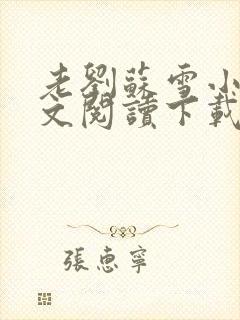 老劉蘇雪小
文閱讀下載
張惠寧